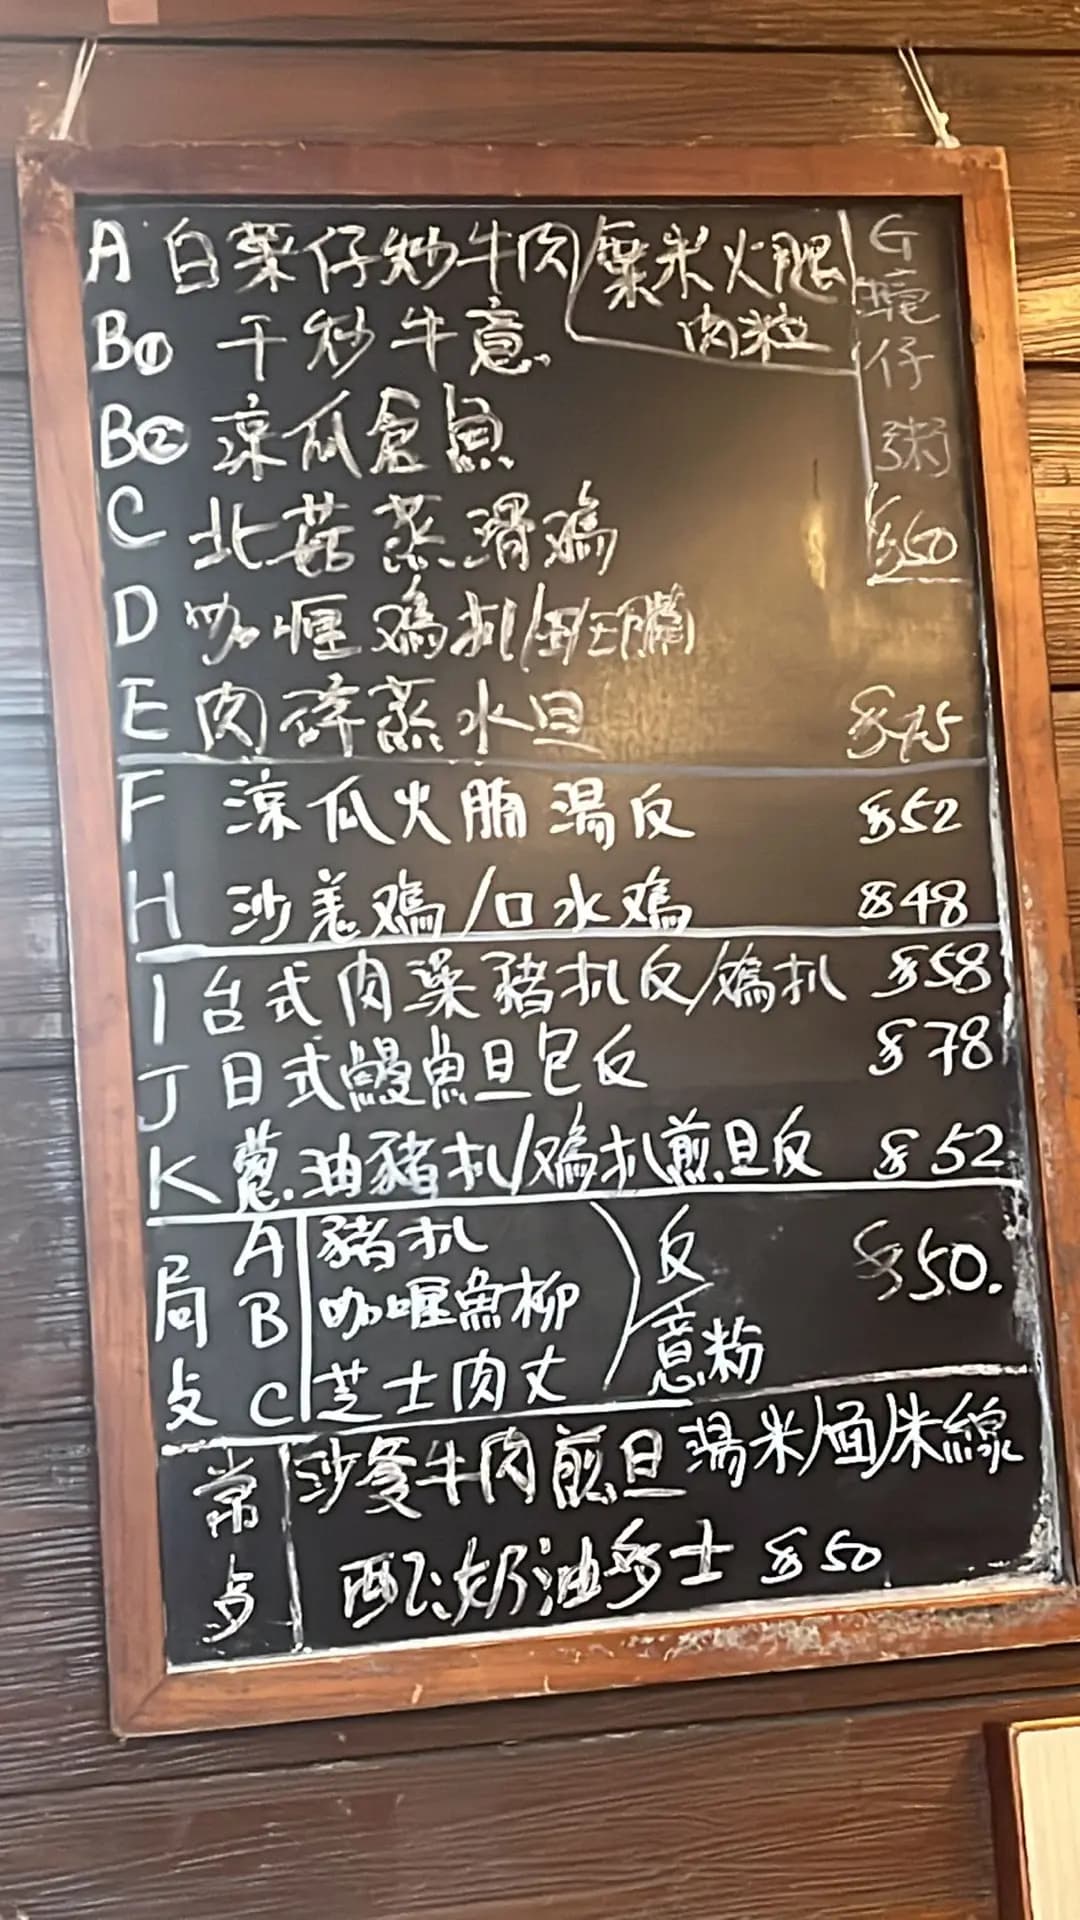 A 白菜仔炒牛肉/粟米火腿
肉粒
B① 干炒牛意
B② 涼瓜倉魚
C 北菇蒸滑鸡
D 咖喱鸡扒/
E 肉碎蒸水旦 $75
F 涼瓜火腩湯反 $52
H 沙姜鸡/口水鸡 $48
I 台式肉燥豬扒反/鸡扒 $58
J 日式鰻魚旦包反 $78
K 蔥油豬扒/鸡扒煎旦反 $52
局点
A 豬扒
B 咖喱魚柳
C 芝士肉丈
反
意粉
$50.
常点
沙爹牛肉煎旦湯米/面/米線
配奶油多士 $50
G
仔
粥
$50